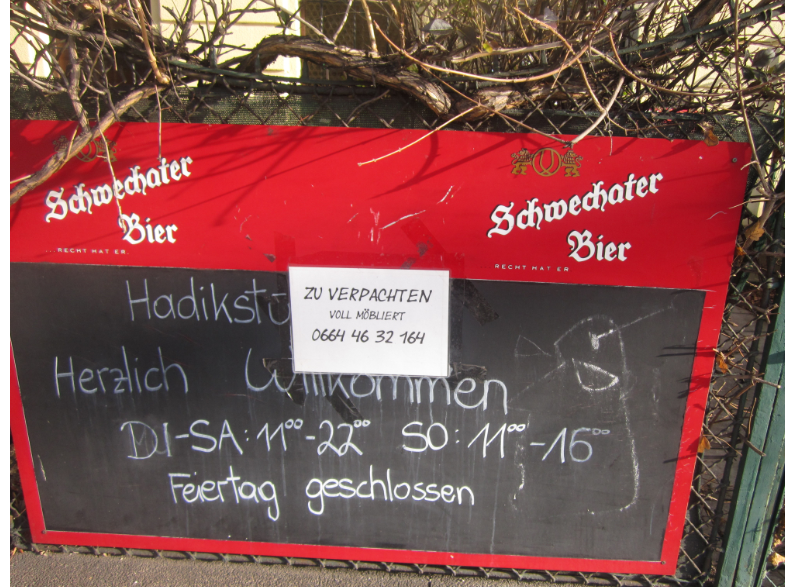 Schwechater
Bier
RECHT HAT ER
Schwechater
Bier
RECHT HAT ER
ZU VERPACHTEN
VOLL MÖBLIERT
0664 46 32 164
Herzlich Willkommen
DI-SA: 11⁰⁰-22⁰⁰ SO: 11⁰⁰-16⁰⁰
Feiertag geschlossen